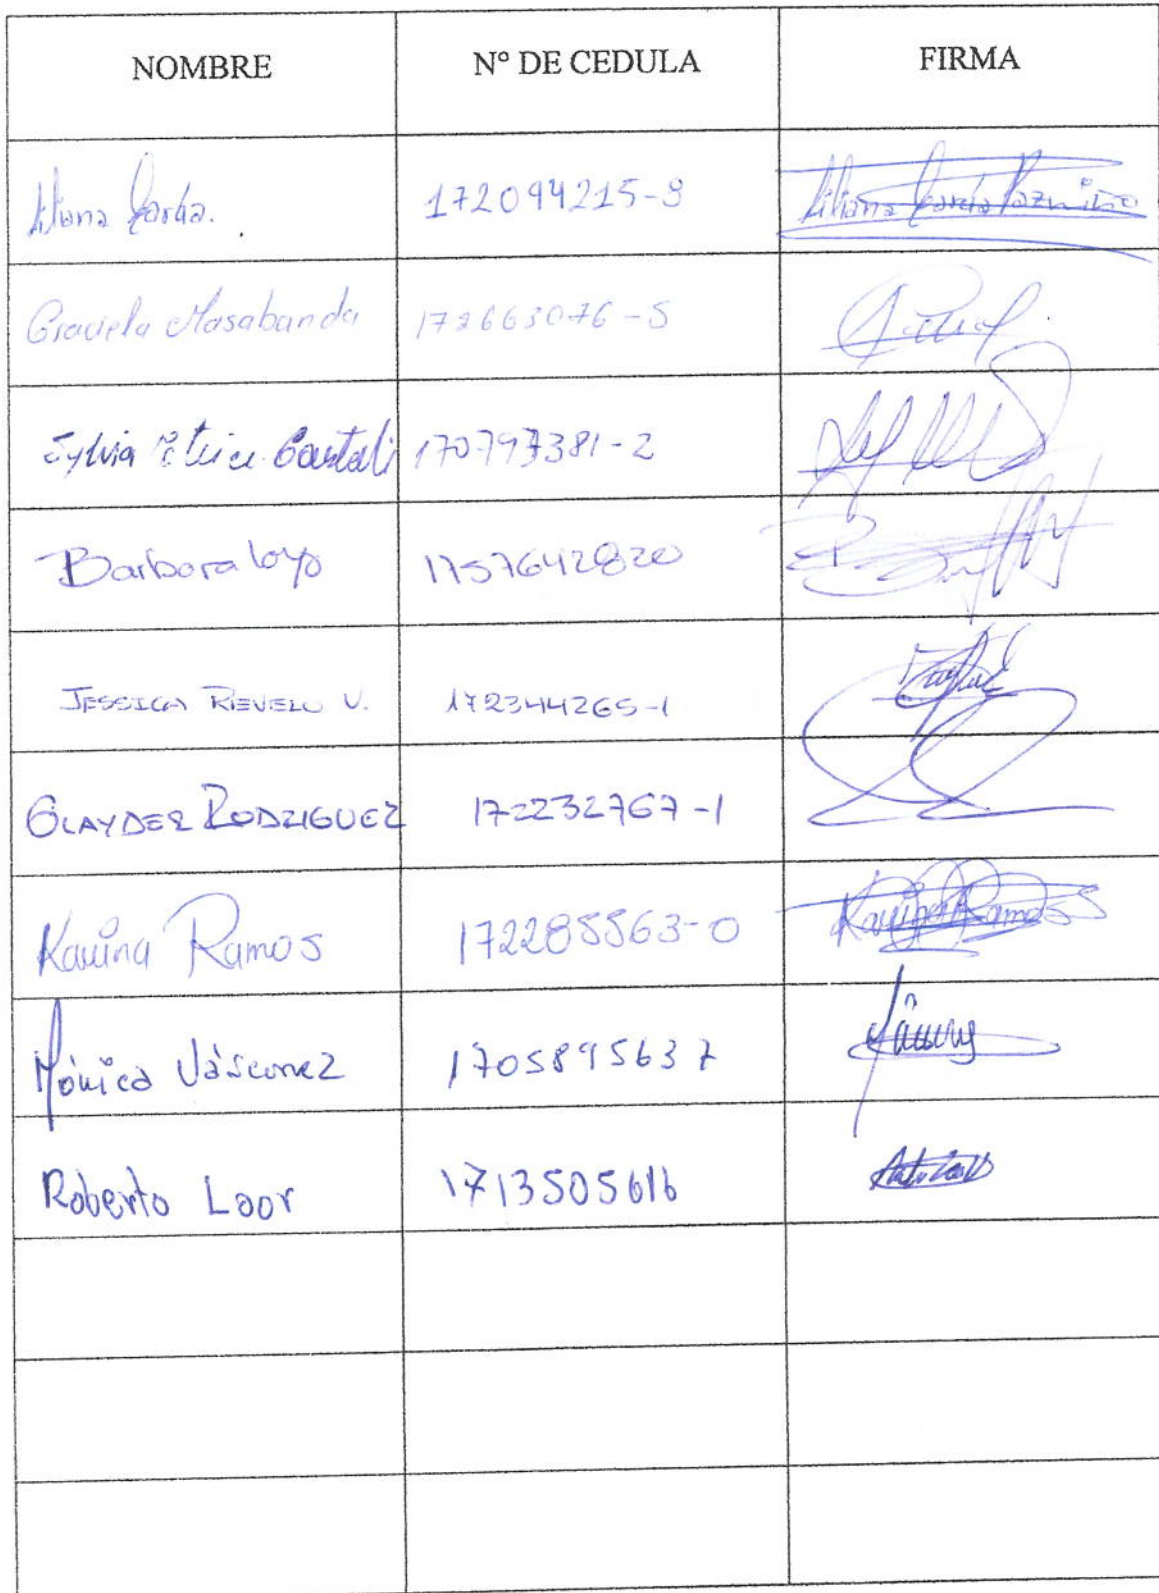 NOMBRE N° DE CEDULA FIRMA
Liliana García. 172094215-8 Liliana García Pazmiño
Graciela Masabanda 172663076-5
Sylvia 170797381-2
Barbara Loyo 1757642820
JESSICA REVELO V. 172344265-1
GLAYDER RODRIGUEZ 172232767-1
Karina Ramos 172285563-0 Karina Ramos
Mónica Vásconez 1705895637
Roberto Loor 1713505616